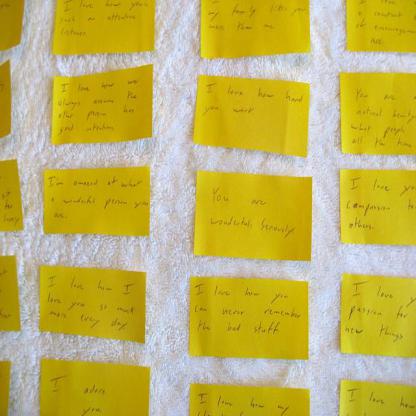 I love how you're
such an attentive
listener.
my family likes you
more than me.
I love
a constant
of encourage
ment.
I love how we
always assume the
other person has
good intentions.
I love how hard
you work
You are
natural beauty
what people
all the time
I'm amazed at what
a wonderful person you
are.
You are
wonderful. Seriously.
I love yo
compassion to
others.
I love how I
love you so much
more every day
I love how you
can never remember
the bad stuff
I love
passion for
new things
I adore
you.
I love how my
I love how